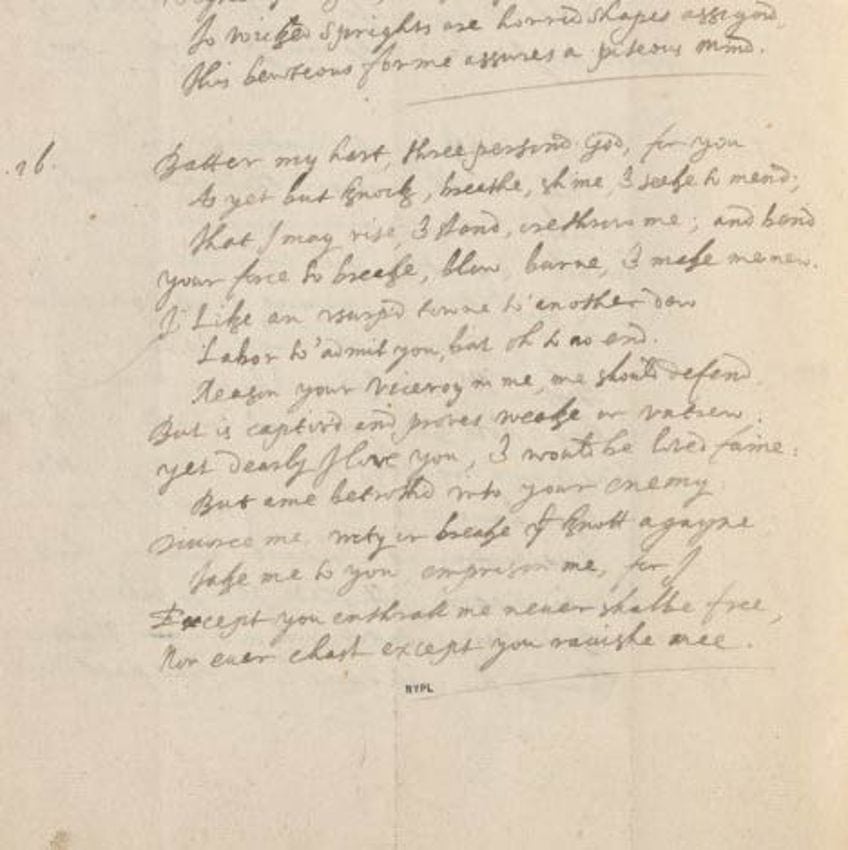 To wicked sprights are horrid shapes assignd,
This bewteous forme assures a piteous mind.
16.
Batter my hart, three persond God, for you
As yet but knock, breathe, shine, & seeke to mend;
That I may rise, & stand, orethrow me; and bend
your force to breake, blow, burne, & make me new.
I Like an vsurp'd towne to'another dew
Labor to'admit you, but oh to no end.
Reason your viceroy in me, me should defend
But is captivd and proves weake or vntrew.
yet dearly I love you, & would be lovd faine:
But ame betrothd vnto your enemy.
Divorce me, vnty or breake yt knott agayne
Take me to you emprison me, for I
Except you enthrall me never shalbe free,
Nor euer chast except you rauishe mee.
NYPL